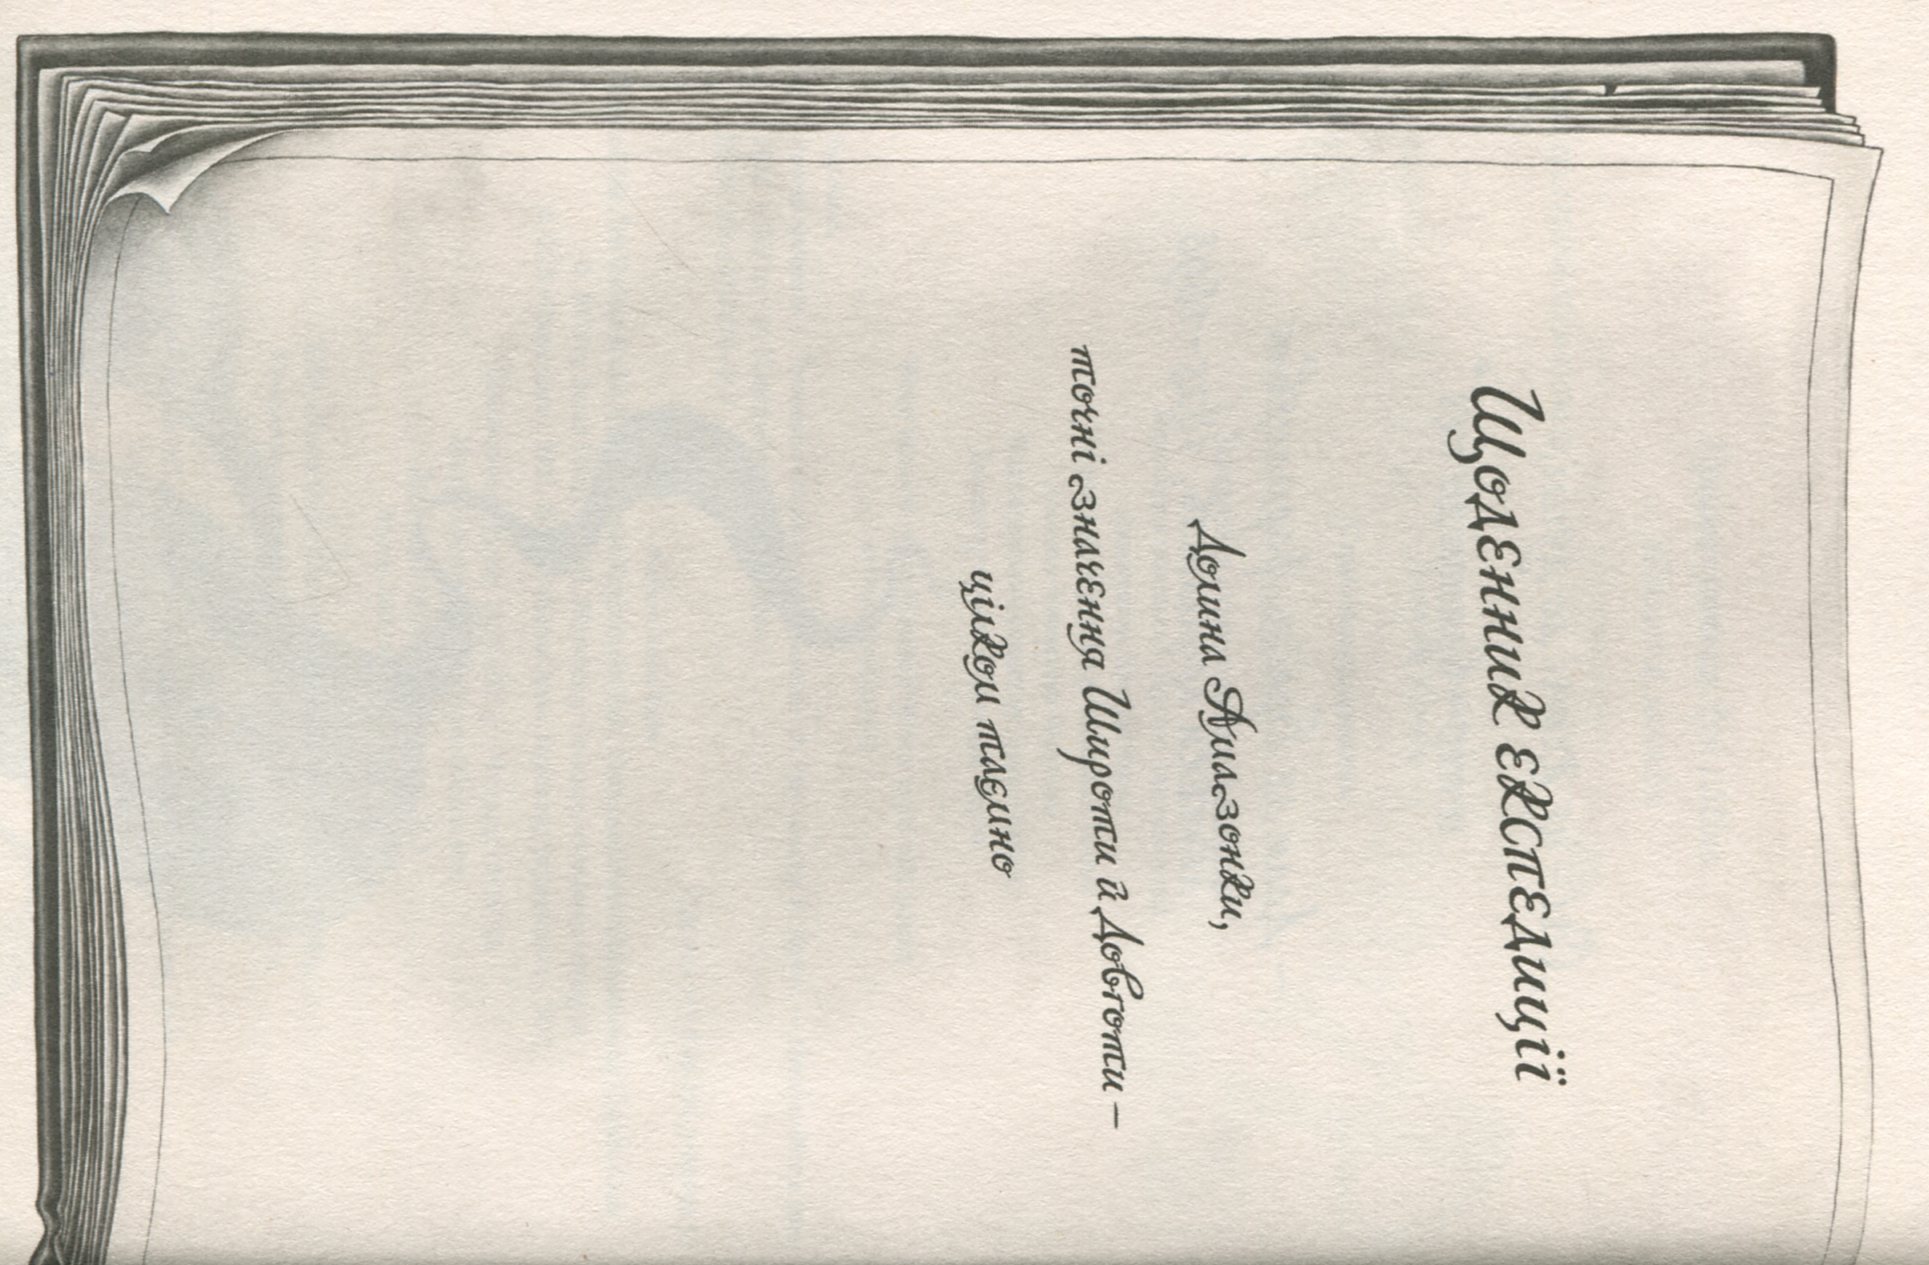 Щоденник експедиції
Долина Амазонки,
точні значення Широти й Довготи –
цілком таємно